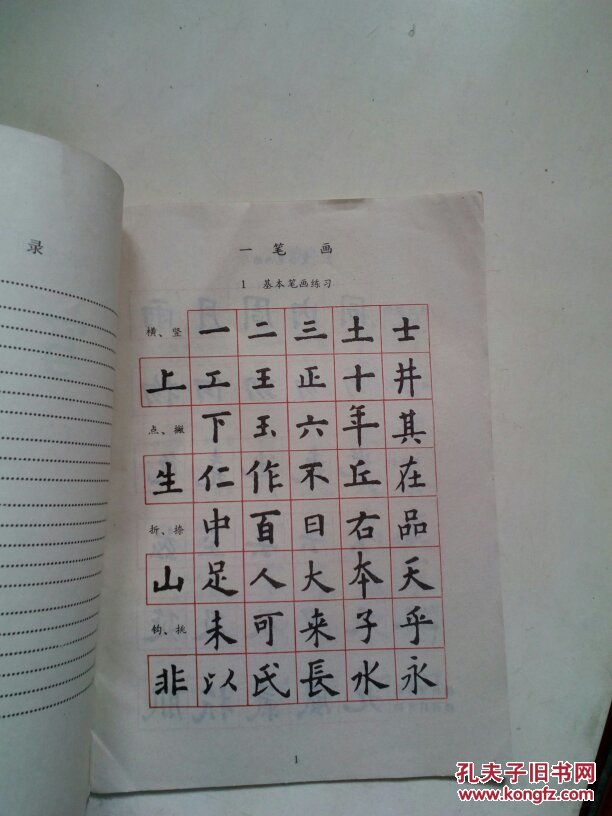 录
一 笔 画
1 基本笔画练习
横、竖 一 二 三 土 士
上 工 王 正 十 井
点、撇 下 玉 六 年 其
生 仁 作 不 丘 在
折、捺 中 百 日 右 品
山 足 人 大 本 天
钩、挑 未 可 来 子 乎
非 以 民 長 水 永
1
孔夫子旧书网
www.kongfz.com